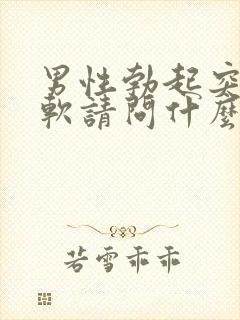 男性勃起突
軟請問什麼
若雪乖乖